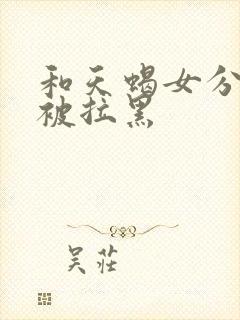 和天蝎女分
被拉黑
吴莊